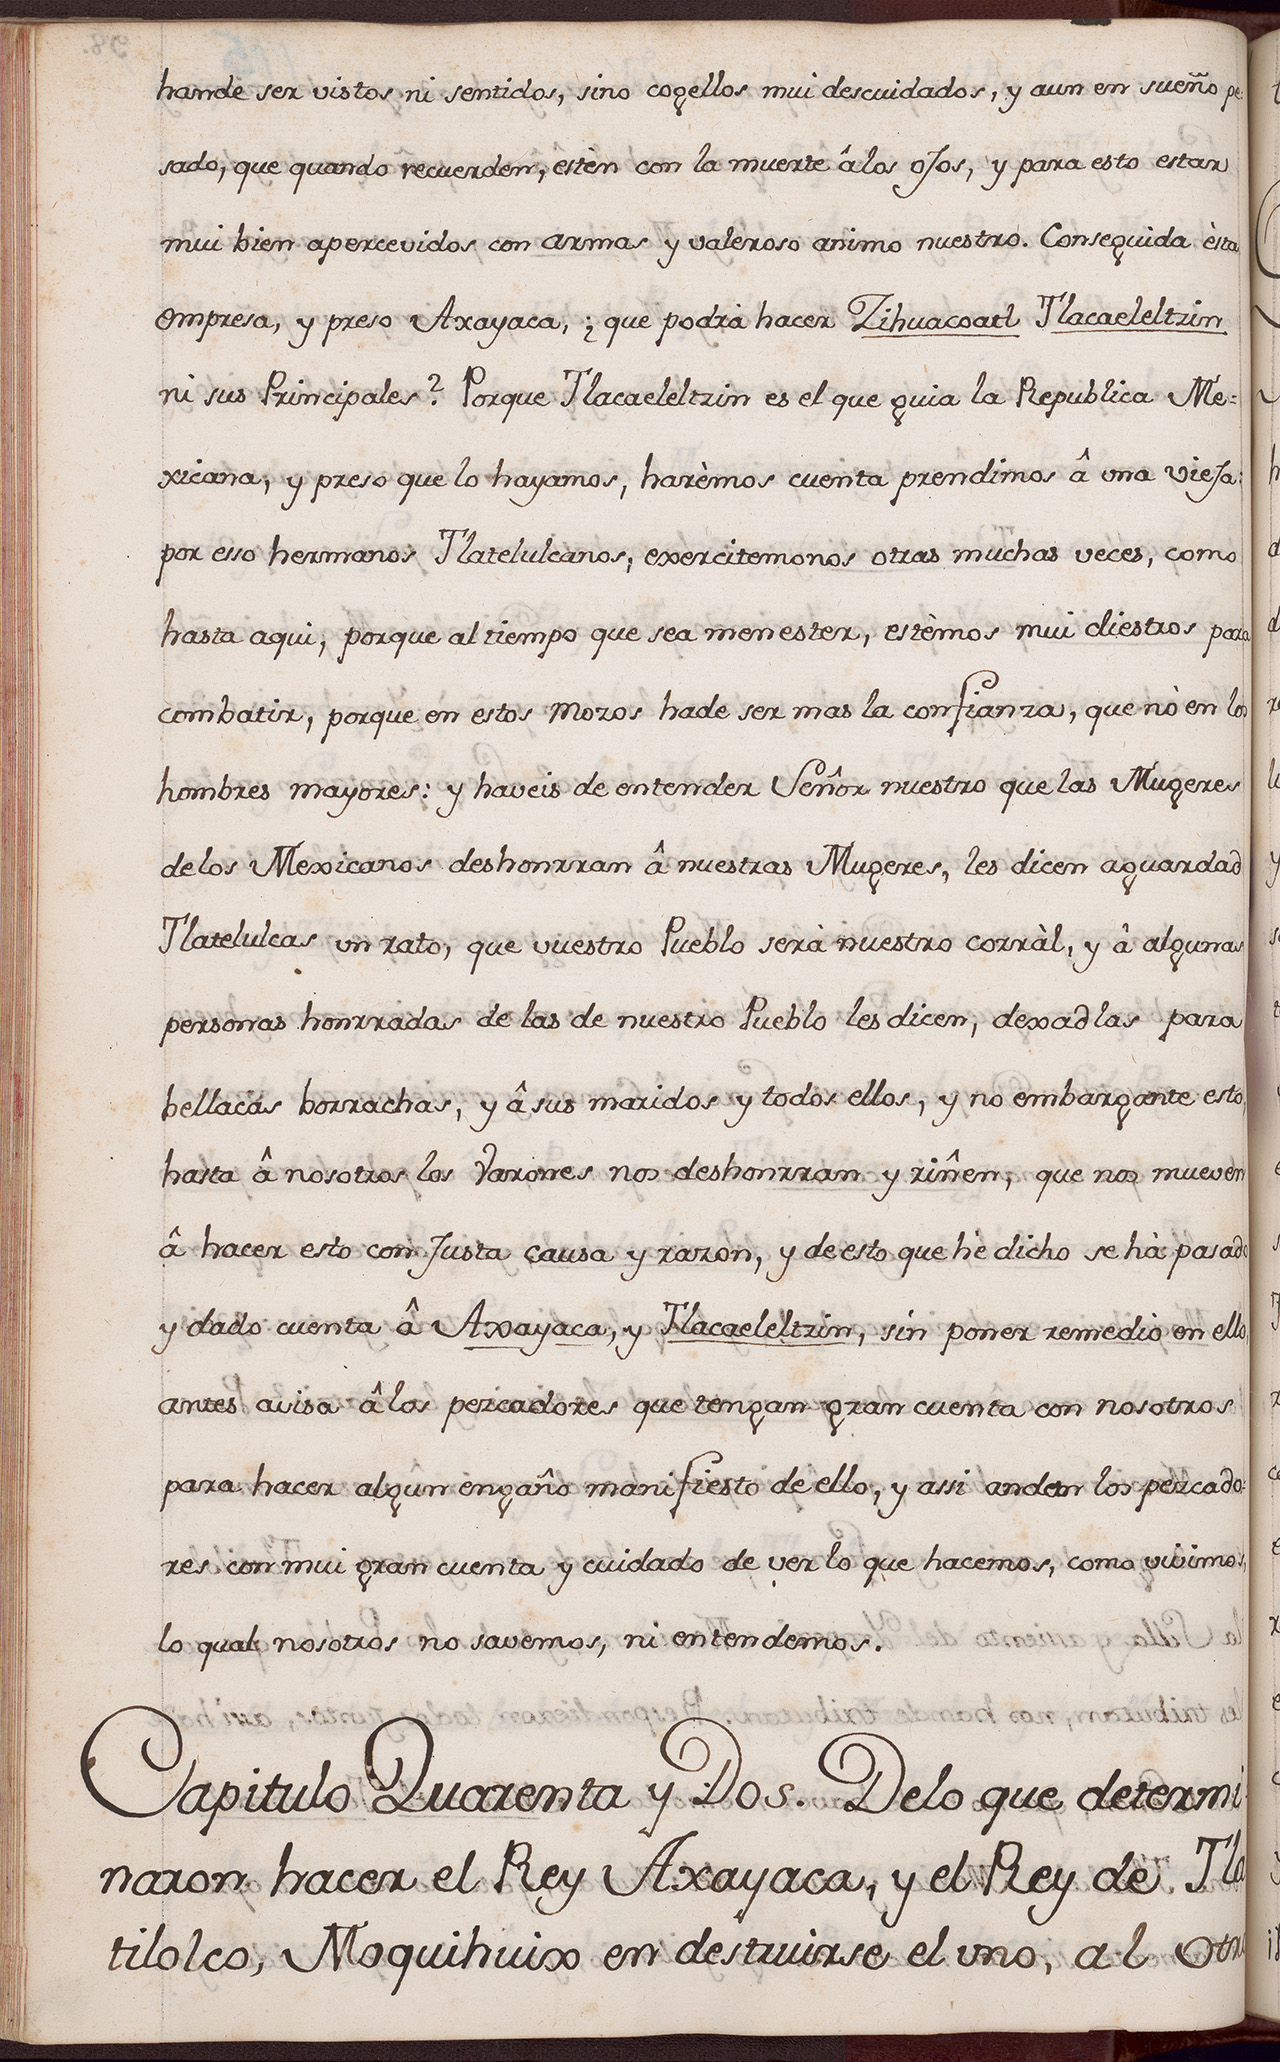 hande ser vistos ni sentidos, sino cogellos mui descuidados, y aun en sueño pe
sado, que quando recuerden, estèn con la muerte â los oJos, y para esto estar
mui bien apercevidos con armas y valeroso animo nuestro. Conseguida èsta
empresa, y preso Axayaca, ¿que podrà hacer Zihuacoatl Tlacaeleltzin
ni sus Principales? Porque Tlacaeleltzin es el que guia la Republica Me=
xicana, y preso que lo hayamos, harèmos cuenta prendimos â una vieJa:
por esso hermanos Tlatelulcanos, exercitemonos otras muchas veces, como
hasta aqui, porque al tiempo que sea menester, estèmos mui diestros para
combatir, porque en estos mozos hade ser mas la confianza, que nò en los
hombres mayores: y haveis de entender Señor nuestro que las Mugeres
delos Mexicanos deshonrran â nuestras Mugeres, les dicen aguardad
Tlatelulcas un rato, que vuestro Pueblo serà nuestro corràl, y â algunas
personas honrradas de las de nuestro Pueblo les dicen, dexadlas para
bellacas borrachas, y â sus maridos y todos ellos, y no embargante esto,
hasta â nosotros los Varones nos deshonrran y riñen, que nos mueven
â hacer esto con Justa causa y razon, y de esto que hè dicho se hà pasado
y dado cuenta â Axayaca, y Tlacaeleltzin, sin poner remedio en ello,
antes avisa â los pezcadores que tengan gran cuenta con nosotros
para hacer algun engaño manifiesto de ello, y assi andan los pezcado=
res con mui gran cuenta y cuidado de ver lo que hacemos, como vivimos,
lo qual nosotros no savemos, ni entendemos.
Capitulo Quarenta y Dos. Delo que determi
naron hacer el Rey Axayaca, y el Rey de Tla
tilolco, Moquihuix en destruirse el uno, al otro